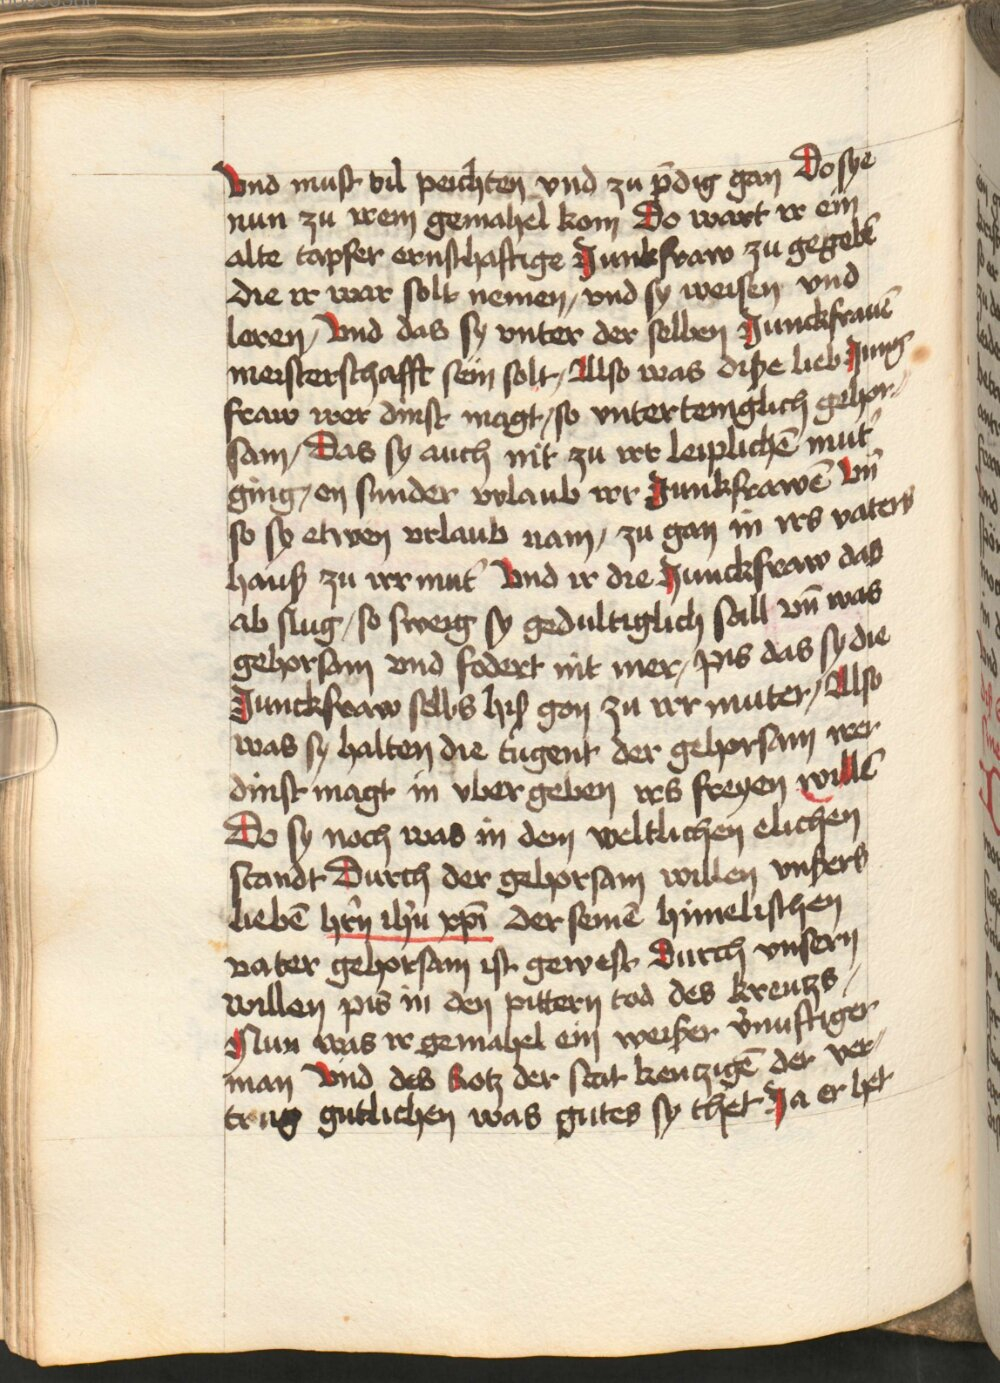 Vnd must vil peichten vnd zu p̄dig gan Do sye
nun zu irem gemahel kom Do wart ir ein
alte tapfer ernsthaftige Junkfraw zu gegebē
die ir war solt nemen / vnd sy weisen vnd
leren / Vnd das sy vnter der selben Junckfrauē
meisterschafft sein solt / Also was diße lieb Jung
fraw irer dinst magt / so vntertenigklich gehor-
sam / Das sy auch nit zu irr leiplichē mut̄
ging / en sunder vrlaub irr Junkfrawē Vn̄
so sy etwen vrlaub nam / zu gan in irs vaters
hauß zu irr mut̄ Vnd ir die Junckfraw das
ab slug / so sweig sy gedultiglich still vn̄ was
gehorsam vnd fodert nit mer / pis das sy die
Junckfraw selbs hiß gon zu irr muter / Also
was sy halten die tugent der gehorsam irer
dinst magt in vber geben irs freyen willē
Do sy noch was in dem weltlichen elichen
standt Durch der gehorsam willen vnßers
liebē hr̄n ih̄u xp̄i der seinē himelischen
vater gehorsam ist gewest Durch vnsern
willen pis in den pittern tod des kreutzs /
Nun was ir gemahel ein weißer v̄nuftiger
man Vnd des Rotz der stat kentzigē der ver-
trug gutlichen was gutes sy thet Ja er het